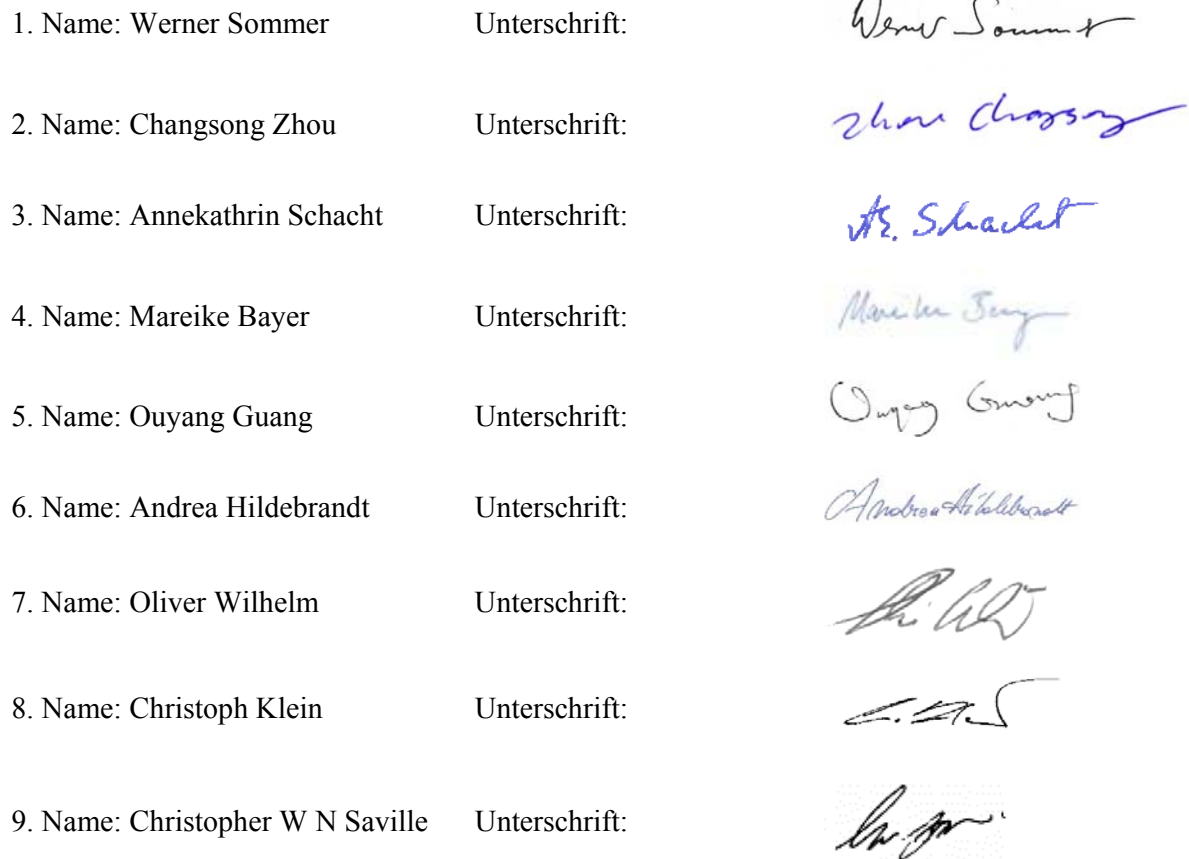 1. Name: Werner Sommer Unterschrift: Werner Sommer
2. Name: Changsong Zhou Unterschrift: Zhou Changsong
3. Name: Annekathrin Schacht Unterschrift: Schacht
4. Name: Mareike Bayer Unterschrift: Mareike
5. Name: Ouyang Guang Unterschrift: Ouyang Guang
6. Name: Andrea Hildebrandt Unterschrift: Andrea Hildebrandt
7. Name: Oliver Wilhelm Unterschrift:
8. Name: Christoph Klein Unterschrift:
9. Name: Christopher W N Saville Unterschrift: